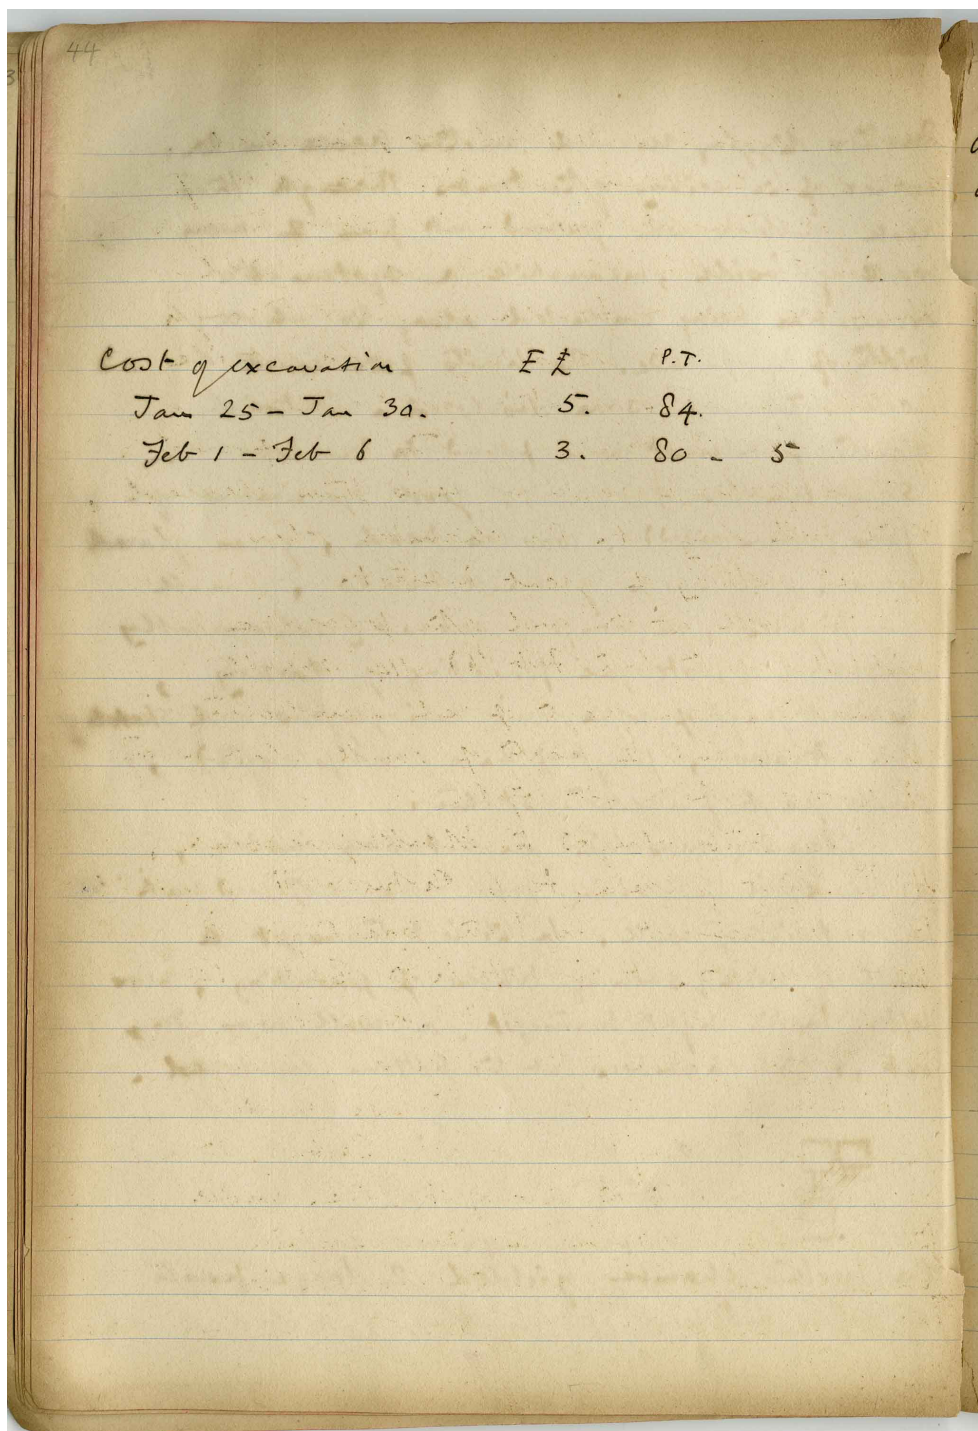 44
Cost of excavation E £ P.T.
Jan 25 - Jan 30. 5. 84.
Feb 1 - Feb 6 3. 80 - 5